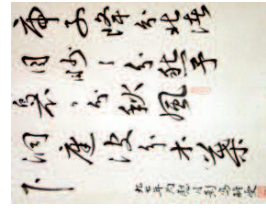 帝子降兮北渚
目眇々兮愁予
裊々兮秋風
洞庭波兮木葉
下